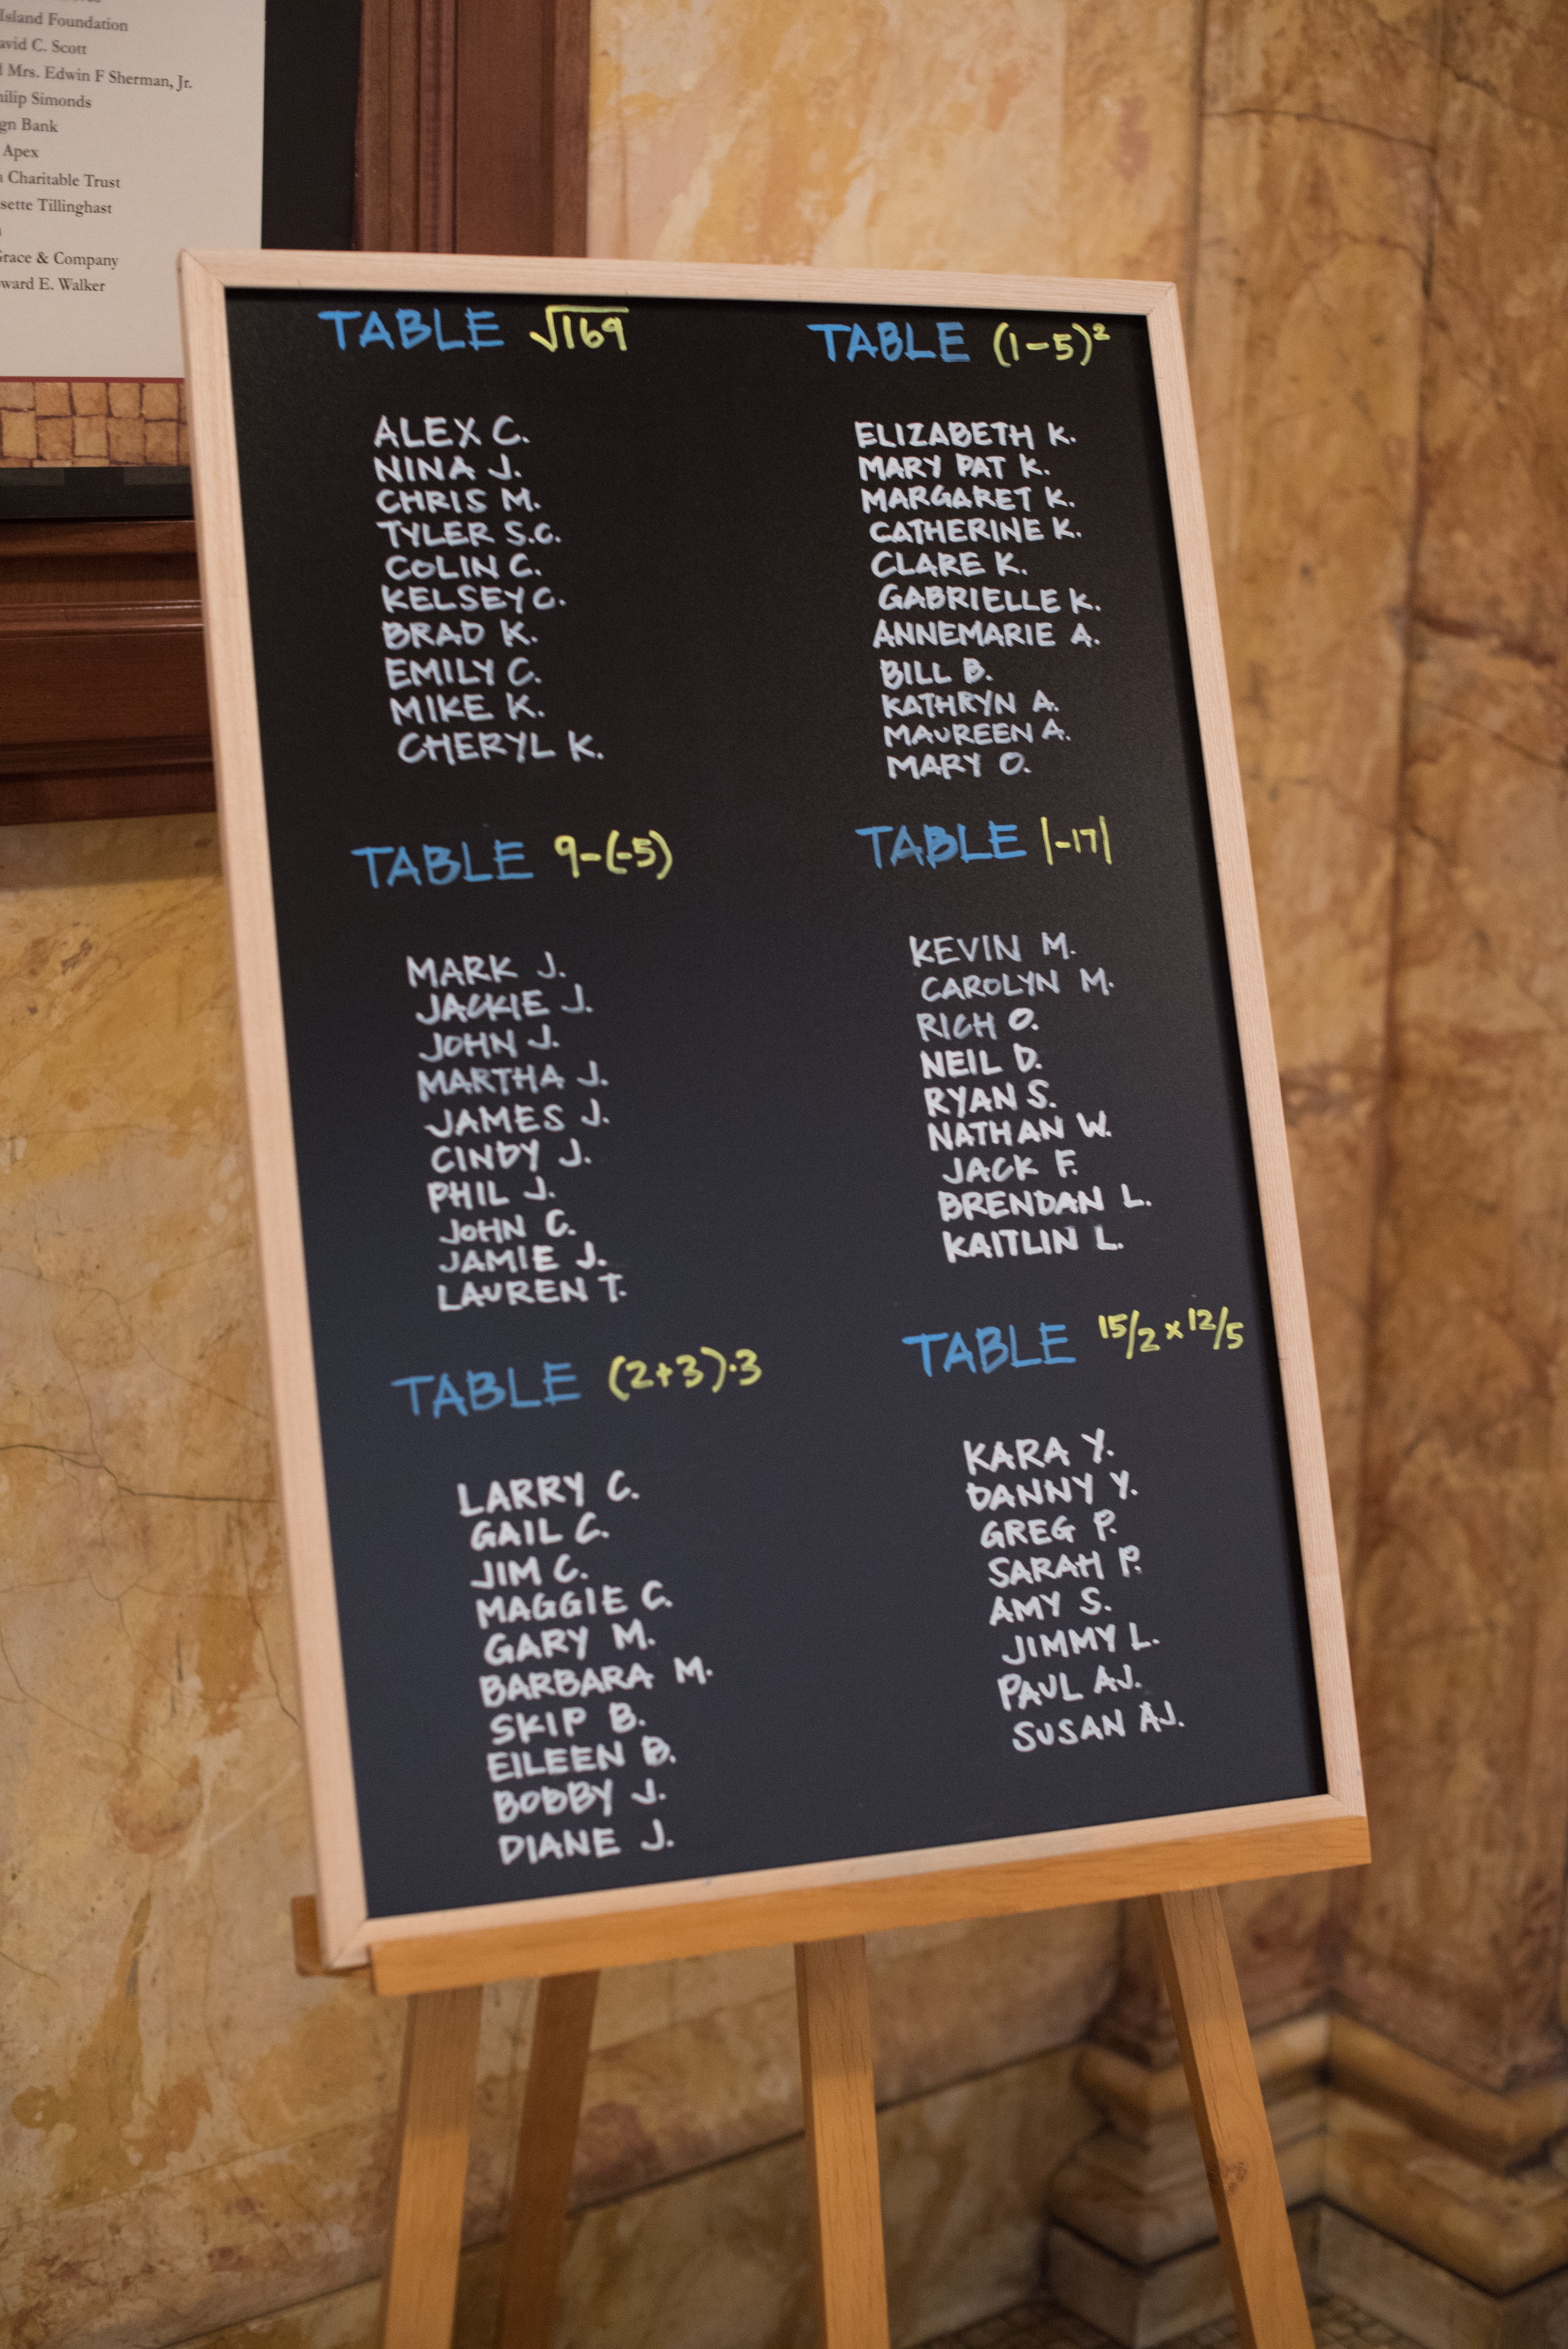 Island Foundation
David C. Scott
Mrs. Edwin F Sherman, Jr.
Philip Simonds
Bank
Apex
Charitable Trust
Tillinghast
Grace & Company
E. Walker
TABLE √169
ALEX C.
NINA J.
CHRIS M.
TYLER S.C.
COLIN C.
KELSEY C.
BRAD K.
EMILY C.
MIKE K.
CHERYL K.
TABLE 9-(-5)
MARK J.
JACKIE J.
JOHN J.
MARTHA J.
JAMES J.
CINDY J.
PHIL J.
JOHN C.
JAMIE J.
LAUREN T.
TABLE (2+3)·3
LARRY C.
GAIL C.
JIM C.
MAGGIE C.
GARY M.
BARBARA M.
SKIP B.
EILEEN B.
BOBBY J.
DIANE J.
TABLE (1-5)²
ELIZABETH K.
MARY PAT K.
MARGARET K.
CATHERINE K.
CLARE K.
GABRIELLE K.
ANNEMARIE A.
BILL B.
KATHRYN A.
MAUREEN A.
MARY O.
TABLE |-17|
KEVIN M.
CAROLYN M.
RICH O.
NEIL D.
RYAN S.
NATHAN W.
JACK F.
BRENDAN L.
KAITLIN L.
TABLE 15/2 x 12/5
KARA Y.
DANNY Y.
GREG P.
SARAH P.
AMY S.
JIMMY L.
PAUL AJ.
SUSAN AJ.